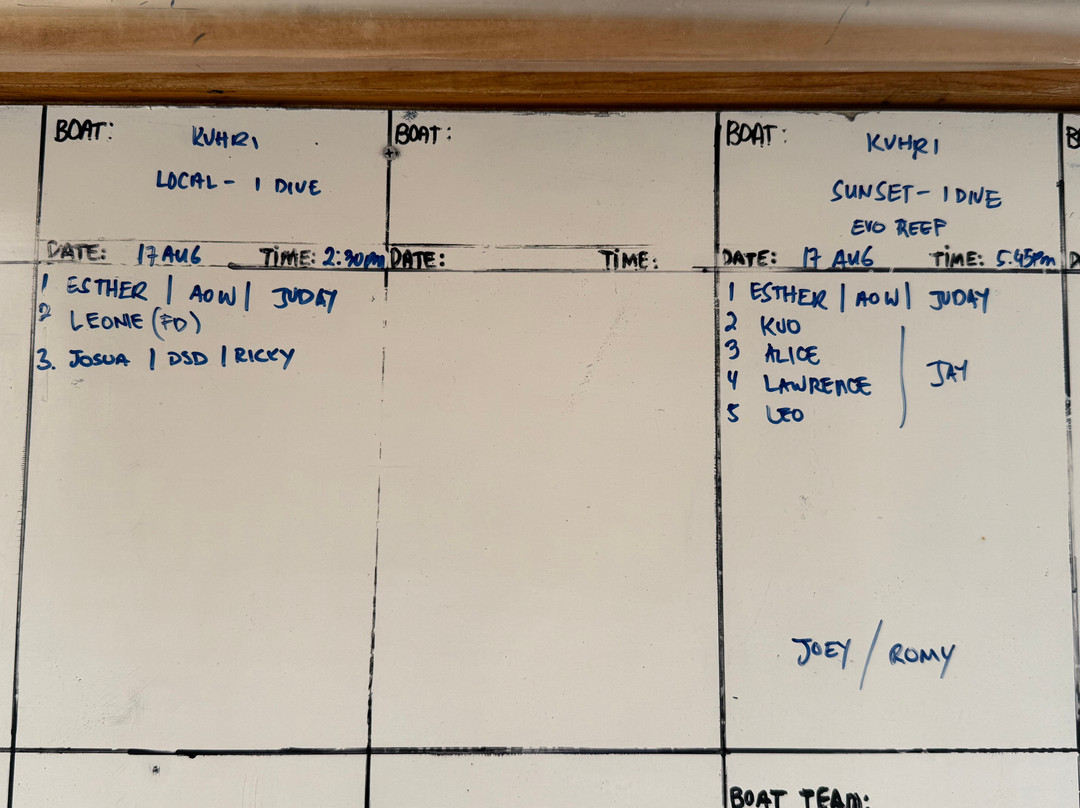 BOAT: KUHRI
LOCAL - 1 DIVE
DATE: 17 AUG TIME: 2:30pm
1 ESTHER | AOW | JUDAY
2 LEONIE (FD)
3. JOSUA | DSD | RICKY
BOAT:
DATE: TIME:
BOAT: KUHRI
SUNSET - 1 DIVE
EVO REEF
DATE: 17 AUG TIME: 5.45pm
1 ESTHER | AOW | JUDAY
2 KUO
3 ALICE
4 LAWRENCE
JAY
5 LEO
JOEY / ROMY
BOAT TEAM: